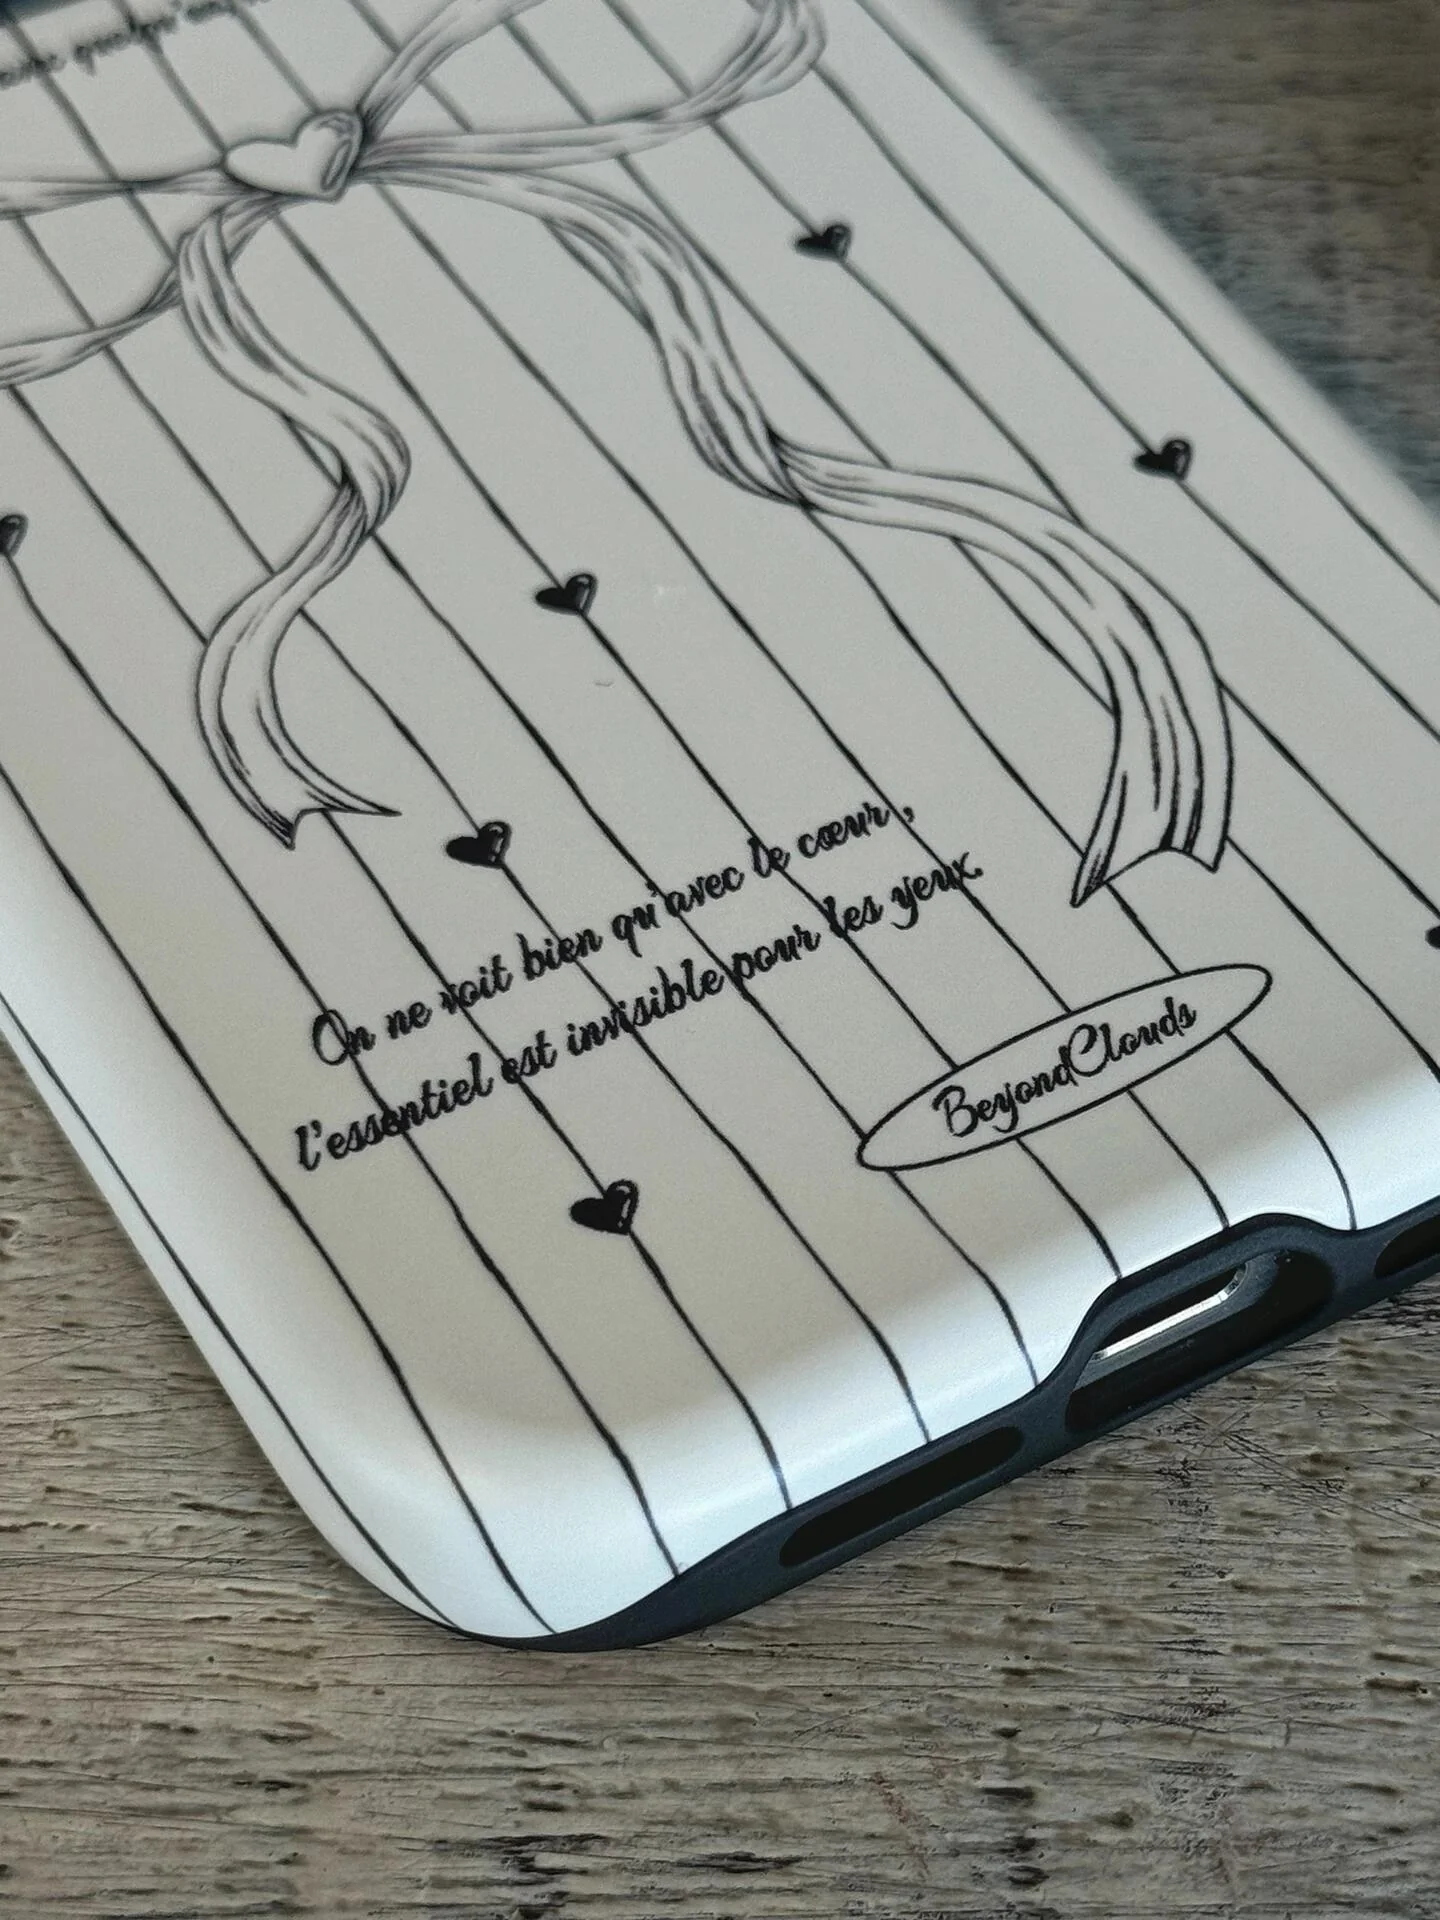 quelqu'un
On ne voit bien qu'avec le cœur ,
l'essentiel est invisible pour les yeux.
BeyondClouds